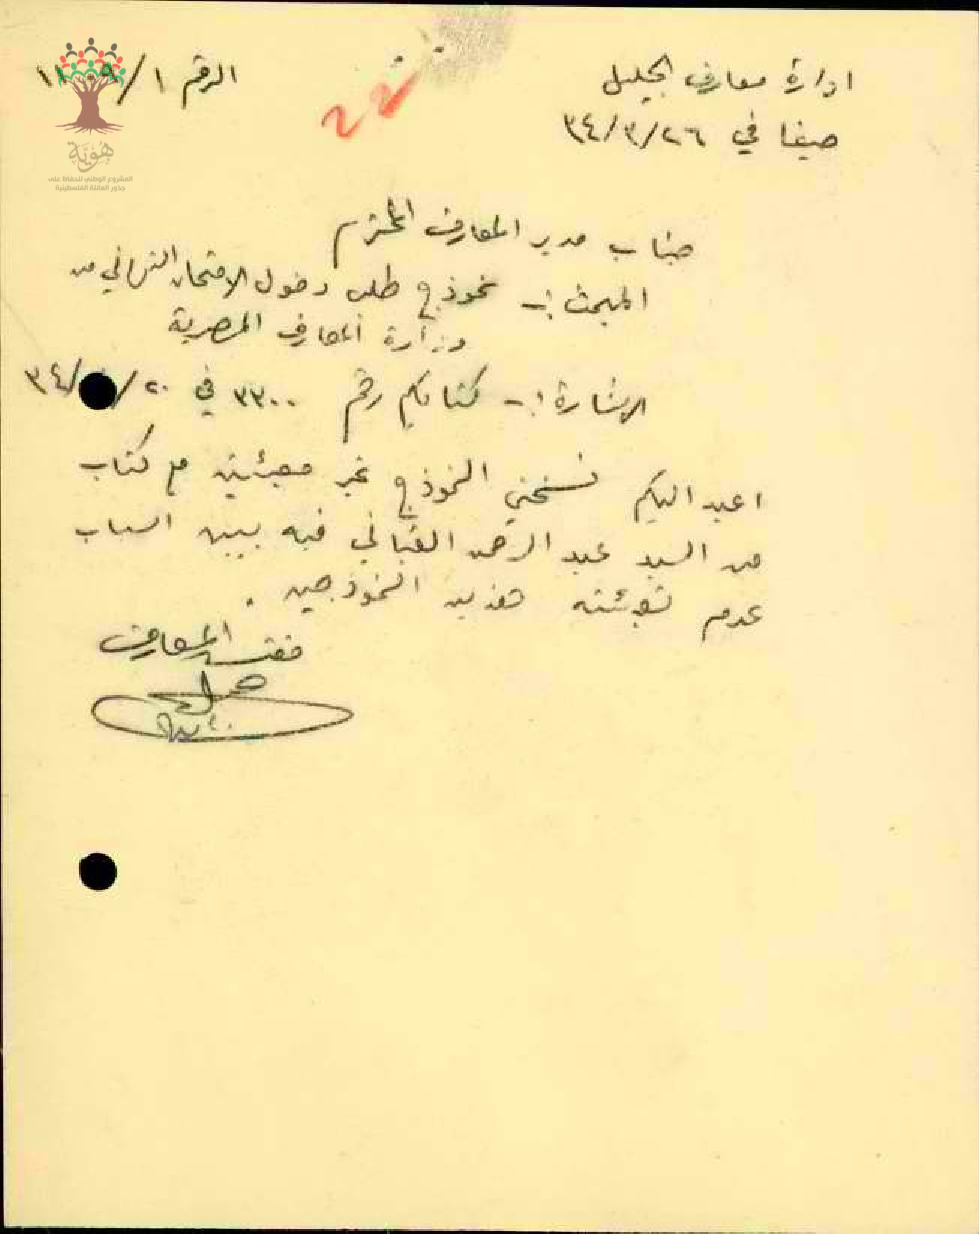 ادارة معارف الجليل
الرقم ١
حيفا في ٢٦/٣/٣٤
هُوِيَّة
المشروع الوطني للحفاظ على
جذور العائلة الفلسطينية
جناب مدير المعارف المحترم
المبحث :- نموذج طلب دخول الامتحان النهائي من
وزارة المعارف المصرية
الاشارة :- كتابكم رقم ٣٣٠٠ في ٢٠/ /٣٤
اعيد اليكم نسختي النموذج غير معبئتين مع كتاب
من السيد عبد الرحمن القباني فيه يبين اسباب
عدم تعبئته هذين النموذجين .
مفتش المعارف